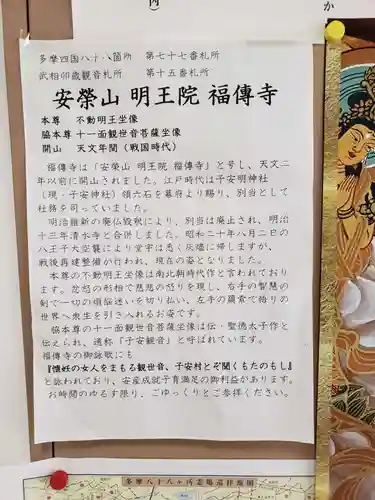 内)
か
多摩四国八十八箇所　第七十七番札所
武相卯歳観音札所　　第十五番札所
安榮山 明王院 福傳寺
本尊　不動明王坐像
脇本尊 十一面観世音菩薩坐像
開山　天文年間(戦国時代)
福傳寺は「安榮山 明王院 福傳寺」と号し、天文二
年以前に開山されました。江戸時代は子安明神社
(現・子安神社)領六石を幕府より賜り、別当として
社務を司っていました。
明治維新の廃仏毀釈により、別当は廃止され、明治
十三年清水寺と合併しました。昭和二十年八月二日の
八王子大空襲により堂宇は悉く灰燼に帰しますが、
戦後再建整備が行われ、現在の姿となりました。
本尊の不動明王坐像は南北朝時代作と言われており
ます。忿怒の形相で慈悲の怒りを現し、右手の智慧の
剣で一切の煩悩迷いを切り払い、左手の羂索で悟りの
世界へ衆生を引き入れるお姿です。
脇本尊の十一面観世音菩薩坐像は伝・聖徳太子作と
伝えられ、通称「子安観音」と呼ばれています。
福傳寺の御詠歌にも
『懐妊の女人をまもる観世音、子安村とぞ聞くもたのもし』
と詠われており、安産成就子育満足の御利益があります。
お時間のゆるす限り、ごゆっくりとご参拝ください。
多摩八十八ヶ所霊場巡拝地図